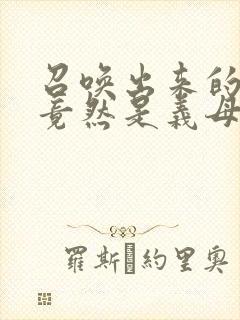 召唤出来的
竟然是義母
羅斯 約里奧